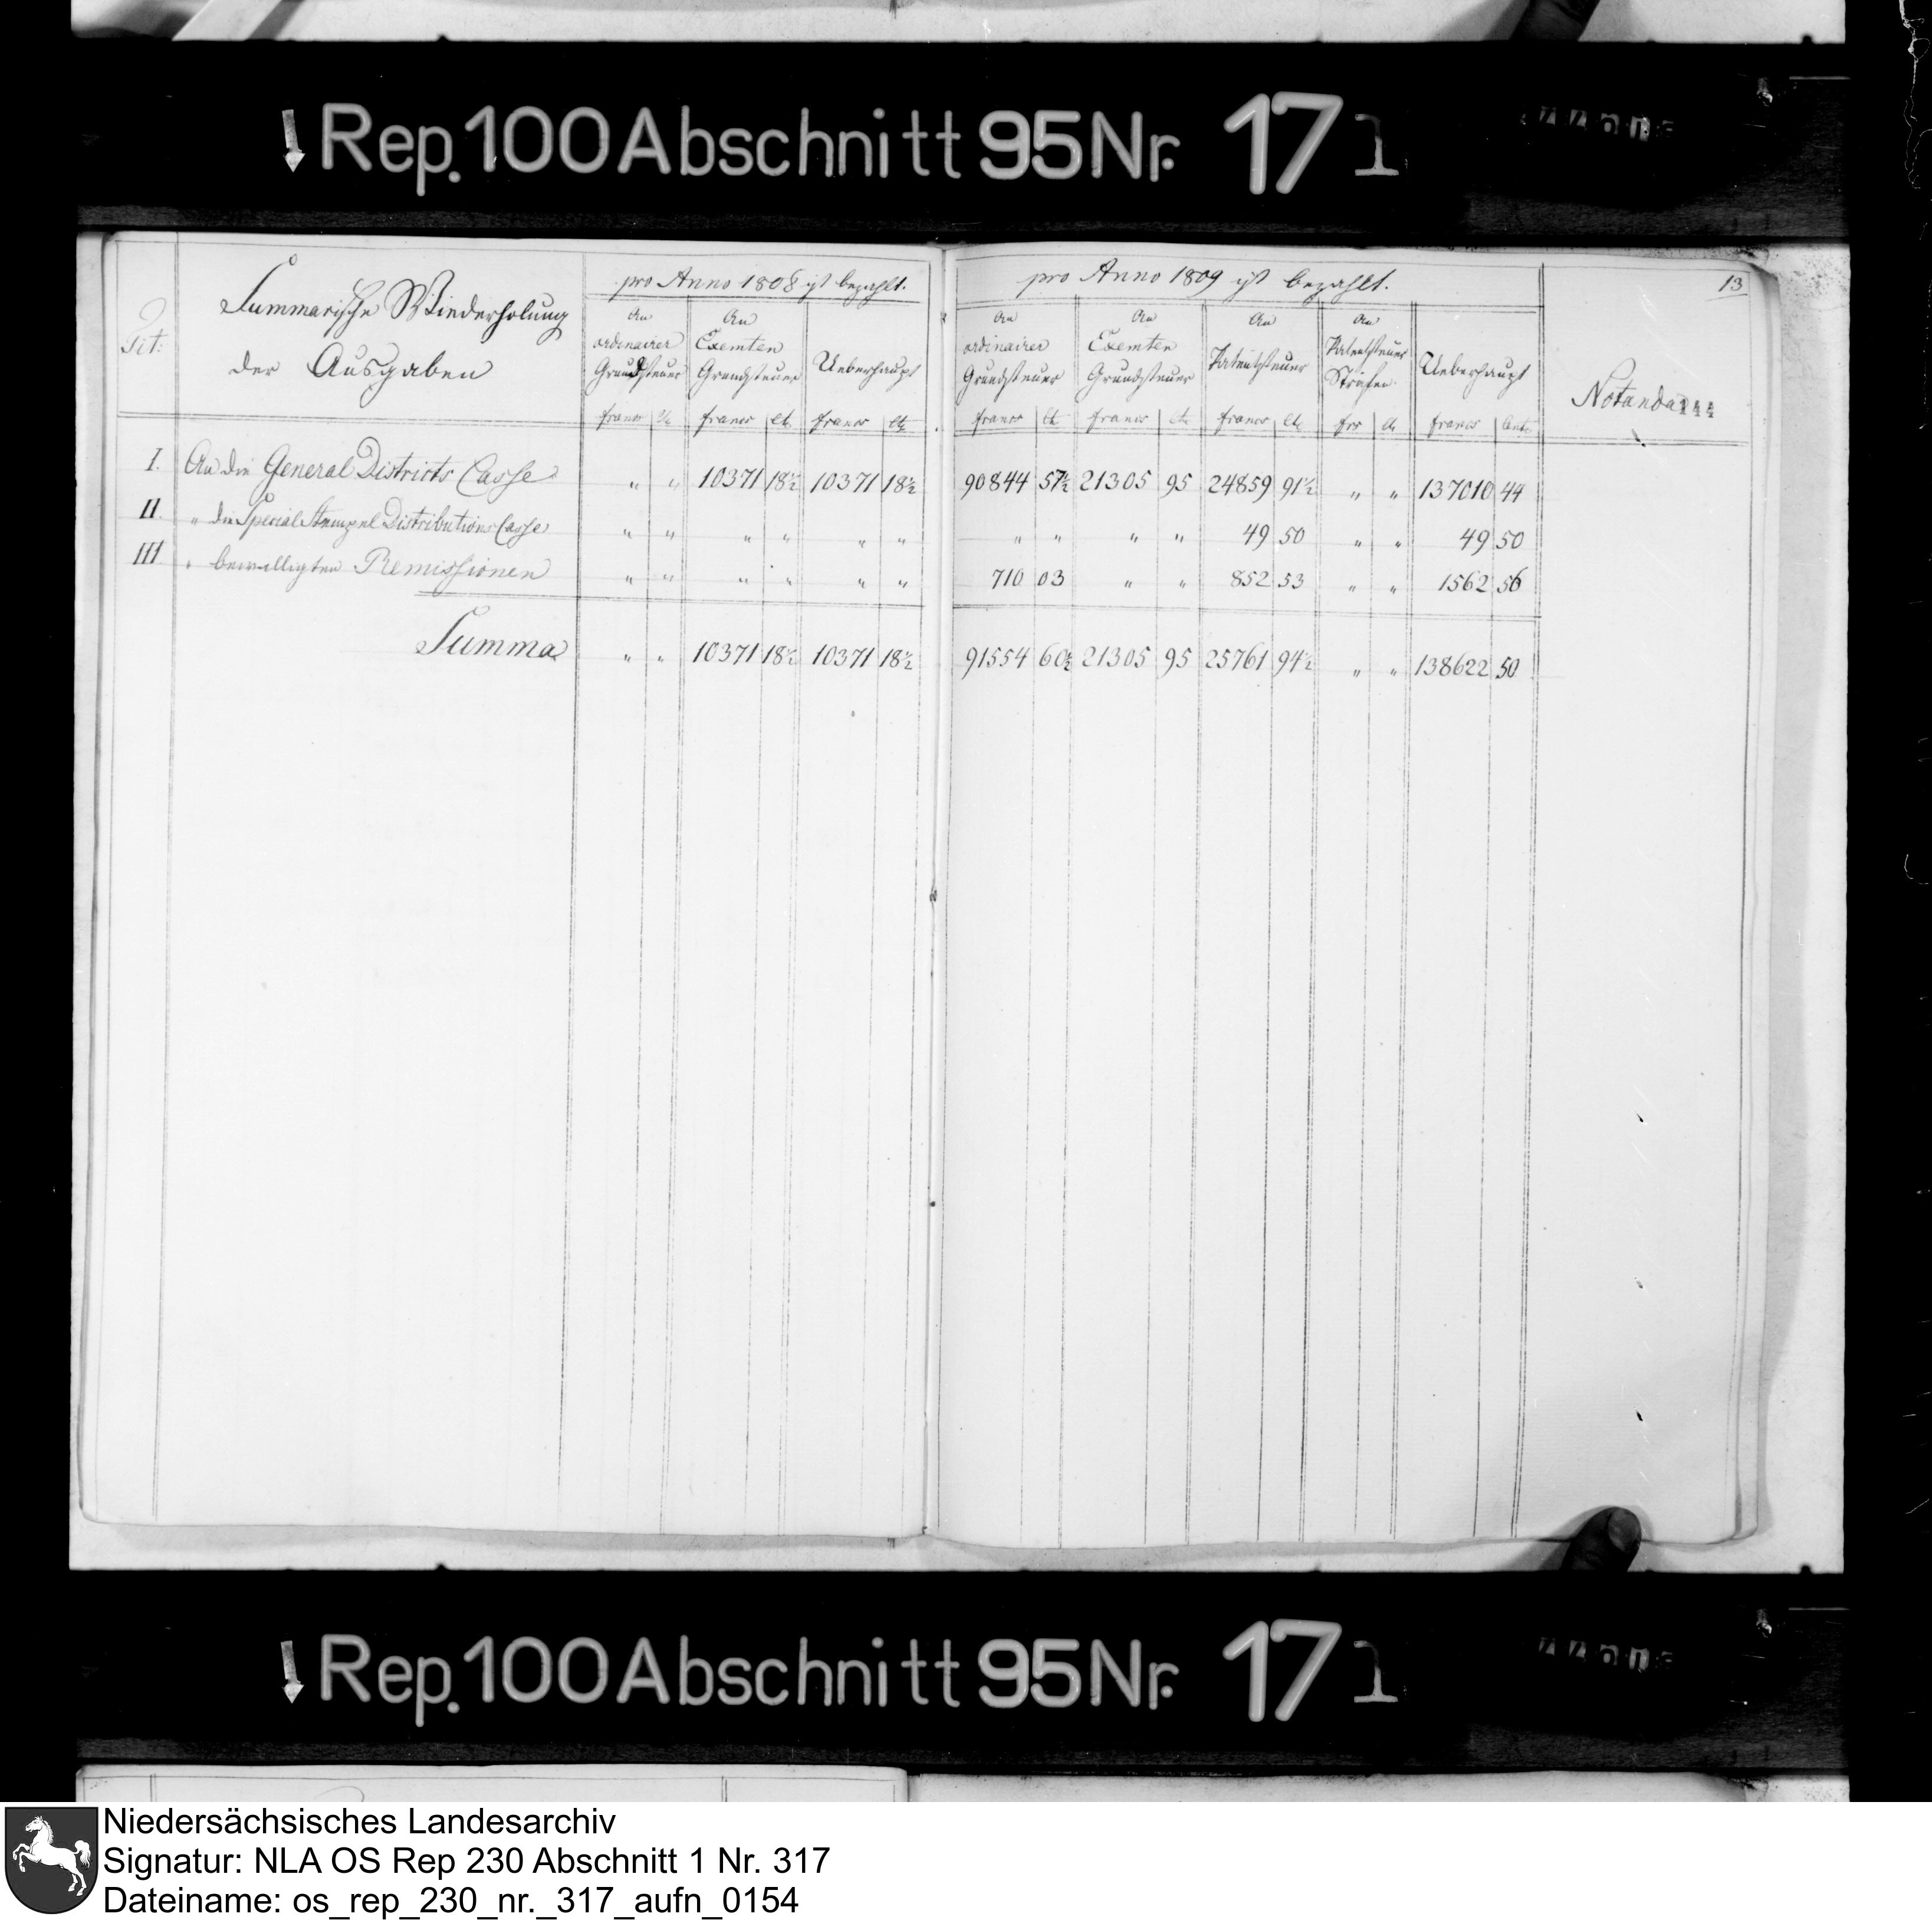 Rep. 100 Abschnitt 95 Nr. 17 1
Tit:
Summarische Wiederholung
der Ausgaben
pro Anno 1808 ist bezahlt.
An ordinairer Grundsteuer
An Exemten Grundsteuer
Ueberhaupt
francs ct. francs ct. francs ct.
pro Anno 1809 ist bezahlt.
An ordinairer Grundsteuer
An Exemten Grundsteuer
An Patentsteuer
An Patentsteuer Strafen
Ueberhaupt
francs ct francs ct. francs ct. frcs ct. francs Cent.
13
Notanda
144
I. An die General Districts Casse " " 10371 18½ 10371 18½ 90844 57½ 21305 95 24859 91½ " " 137010 44
II. " die Special Stempel Distributions Casse " " " " " " " " " " 49 50 " " 49 50
III. " bewilligten Remissionen " " " " " " 710 03 " " 852 53 " " 1562 56
Summa " " 10371 18½ 10371 18½ 91554 60½ 21305 95 25761 94½ " " 138622 50
Rep. 100 Abschnitt 95 Nr. 17 1
Niedersächsisches Landesarchiv
Signatur: NLA OS Rep 230 Abschnitt 1 Nr. 317
Dateiname: os_rep_230_nr._317_aufn_0154